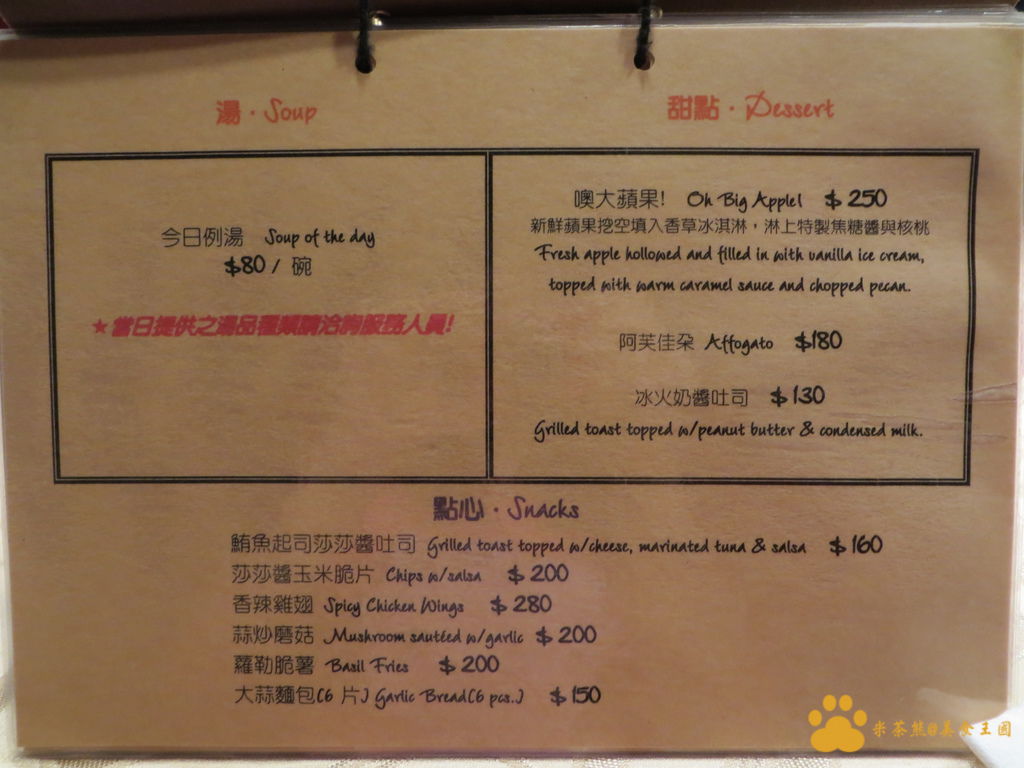 湯 · Soup
今日例湯 Soup of the day
$80 / 碗
★當日提供之湯品種類請洽詢服務人員!
甜點 · Dessert
噢大蘋果! Oh Big Apple! $250
新鮮蘋果挖空填入香草冰淇淋，淋上特製焦糖醬與核桃
Fresh apple hollowed and filled in with vanilla ice cream,
topped with warm caramel sauce and chopped pecan.
阿芙佳朵 Affogato $180
冰火奶醬吐司 $130
Grilled toast topped w/peanut butter & condensed milk.
點心 · Snacks
鮪魚起司莎莎醬吐司 Grilled toast topped w/cheese, marinated tuna & salsa $160
莎莎醬玉米脆片 Chips w/salsa $200
香辣雞翅 Spicy Chicken Wings $280
蒜炒磨菇 Mushroom sautéed w/garlic $200
羅勒脆薯 Basil Fries $200
大蒜麵包(6 片) Garlic Bread(6 pcs.) $150
米茶熊@美食王国